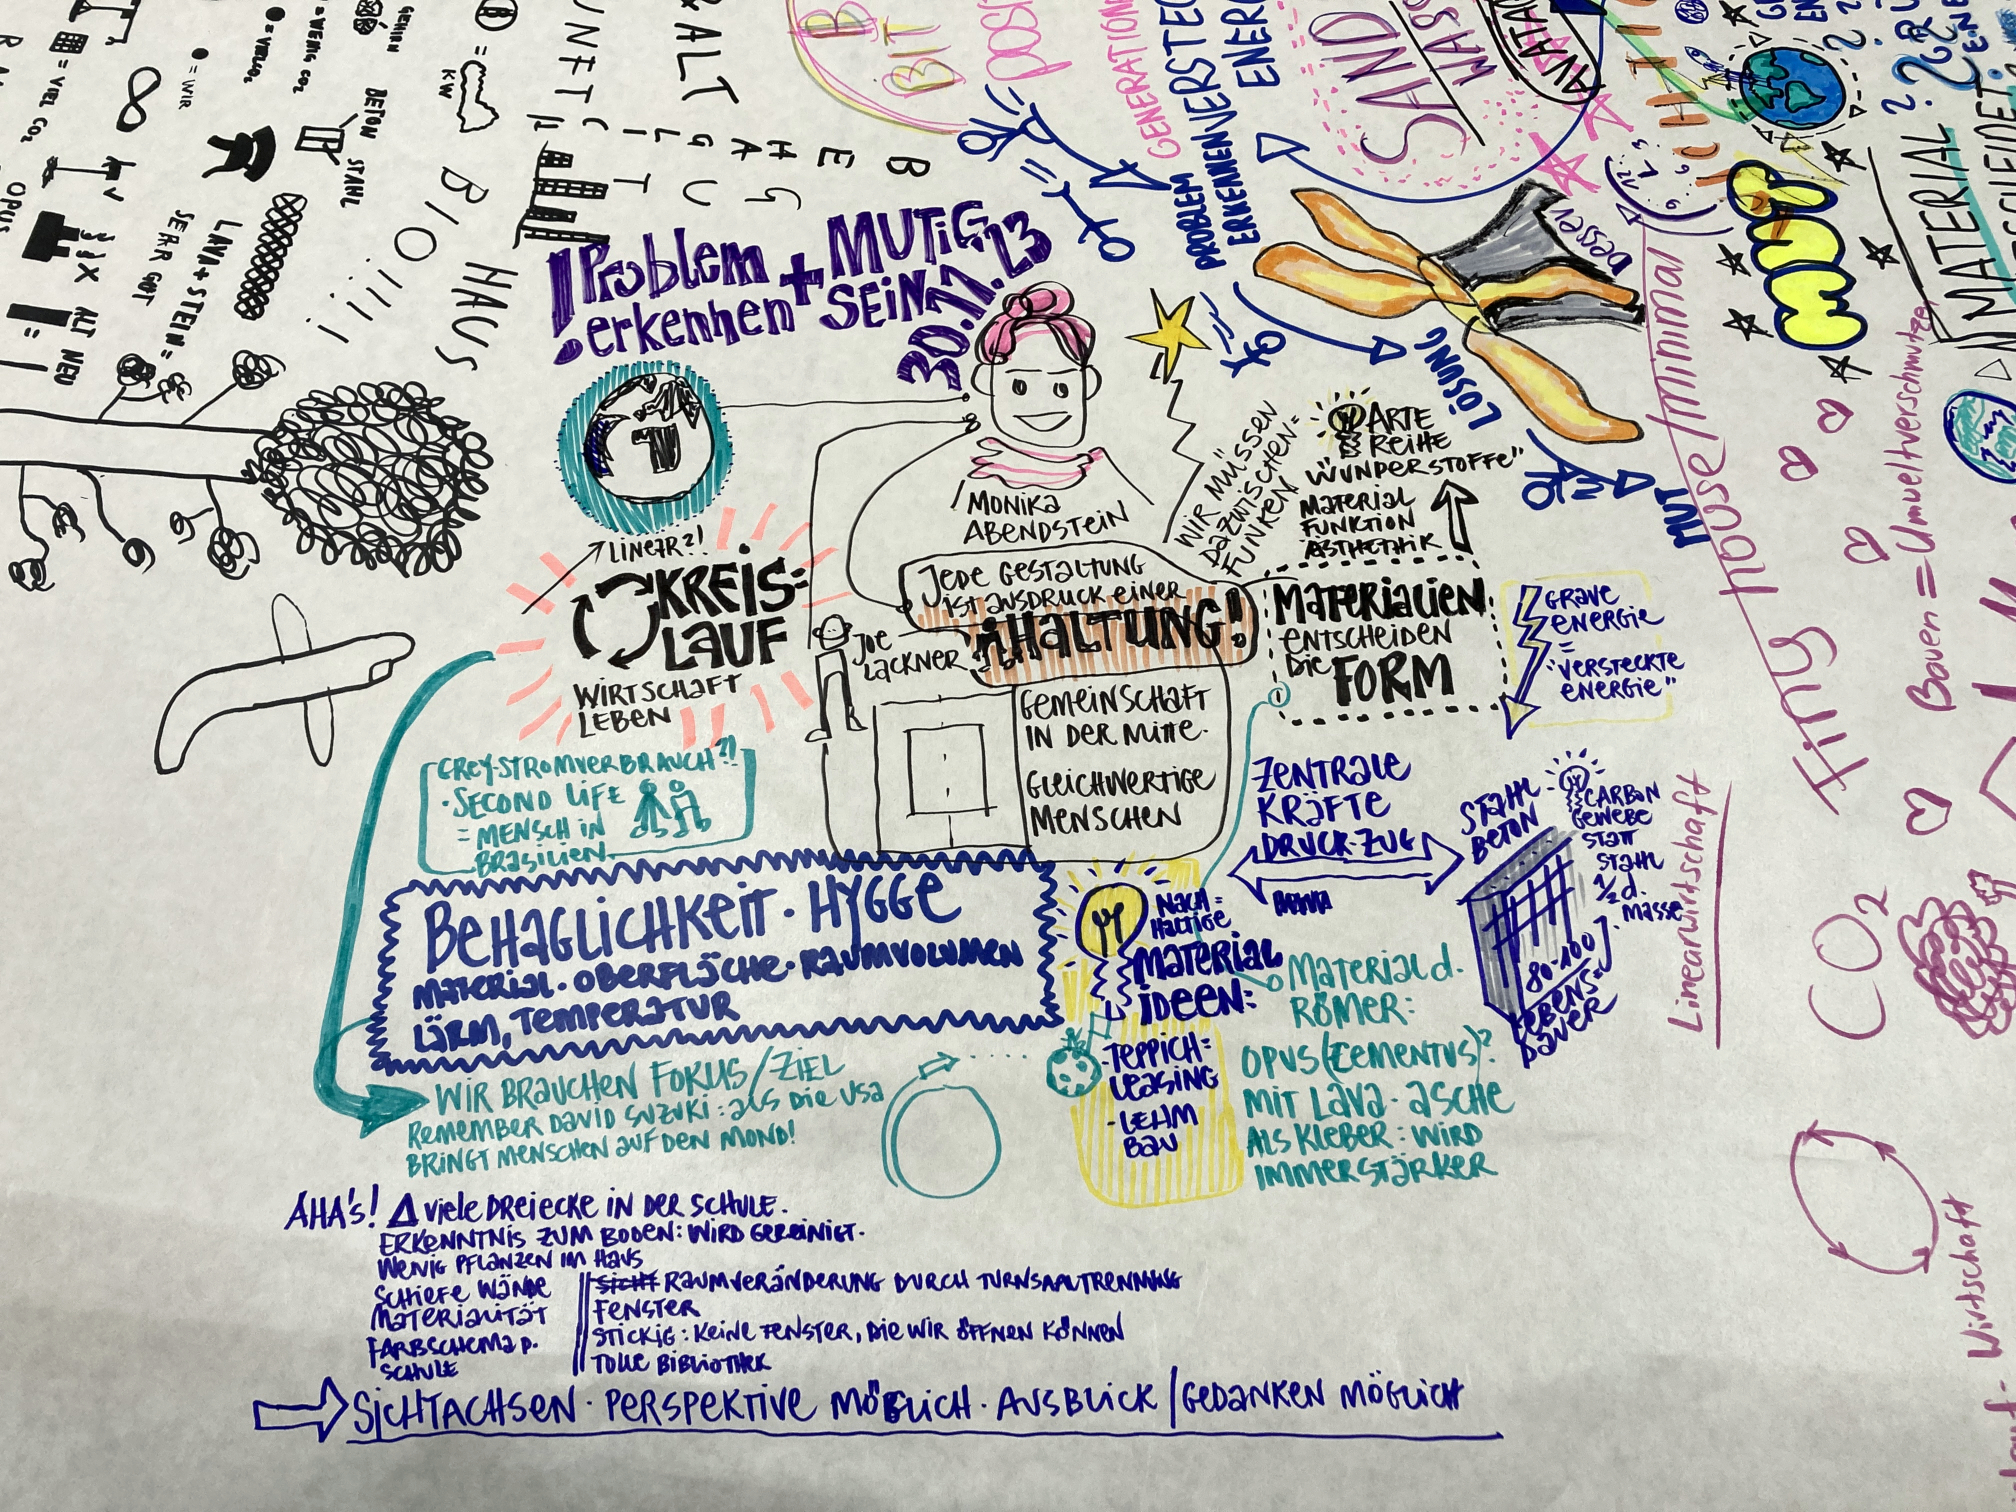 ! Problem erkennen + MUTIG SEIN
30.11.23
MONIKA
ABENDSTEIN
JEDE GESTALTUNG
IST AUSDRUCK EINER
HALTUNG!
JOE
LACKNER
GEMEINSCHAFT
IN DER MITTE.
GLEICHWERTIGE
MENSCHEN
LINEAR?!
KREIS=
LAUF
WIRTSCHAFT
LEBEN
GREY-STROMVERBRAUCH?!
· SECOND LIFE
= MENSCH IN
BRASILIEN
BEHAGLICHKEIT · HYGGE
MATERIAL · OBERFLÄCHE · RAUMVOLUMEN
LÄRM, TEMPERATUR
WIR BRAUCHEN FOKUS / ZIEL
REMEMBER DAVID SUZUKI: ALS DIE USA
BRINGT MENSCHEN AUF DEN MOND!
WIR MÜSSEN
DAZWISCHEN=
FUNKEN
ARTE
REIHE
"WUNDERSTOFFE"
MATERIAL
FUNKTION
ÄSTHETHIK
MATERIALIEN
ENTSCHEIDEN
DIE FORM
GRAVE
ENERGIE
=
"VERSTECKTE
ENERGIE"
ZENTRALE
KRÄFTE
DRUCK-ZUG
STAHL
BETON
CARBON
GEWEBE
STATT
STAHL
1/2 d.
MASSE
80-100 J.
LEBENS=
DAUER
NACH=
HALTIGE
MATERIAL
IDEEN:
-TEPPICH=
LEASING
-LEHM
BAU
MATERIAL d.
RÖMER:
OPUS (CEMENTUS)?
MIT LAVA-ASCHE
ALS KLEBER: WIRD
IMMER STÄRKER
AHA's! Δ VIELE DREIECKE IN DER SCHULE.
ERKENNTNIS ZUM BODEN: WIRD GEREINIGT.
WENIG PFLANZEN IM HAUS
SCHIEFE WÄNDE
MATERIALITÄT
FARBSCHEMA D.
SCHULE
RAUMVERÄNDERUNG DURCH TURNSAALTRENNUNG
FENSTER
STICKIG: KEINE FENSTER, DIE WIR ÖFFNEN KÖNNEN
TOLLE BIBLIOTHEK
SICHTACHSEN · PERSPEKTIVE MÖGLICH · AUSBLICK / GEDANKEN MÖGLICH
PROBLEM
ERKENNEN
LÖSUNG
MUT
GENERATION
VERSTEC
ENERG
SAND
WASS
AVATA
BIT
POSI
besser
MUT
Tiny house / minimal
Bauen = Umweltverschmutze
Linearwirtschaft
CO2
Wirtschaft
MATERIAL
SCHEIDET
BEHAGLICHKEIT
BIOIIIII HAUS
BETON
STAHL
LAVA + STEIN =
SEHR GUT
OPUS
ALT NEU
= VIEL CO2
= WENIG CO2
= WIR
KW